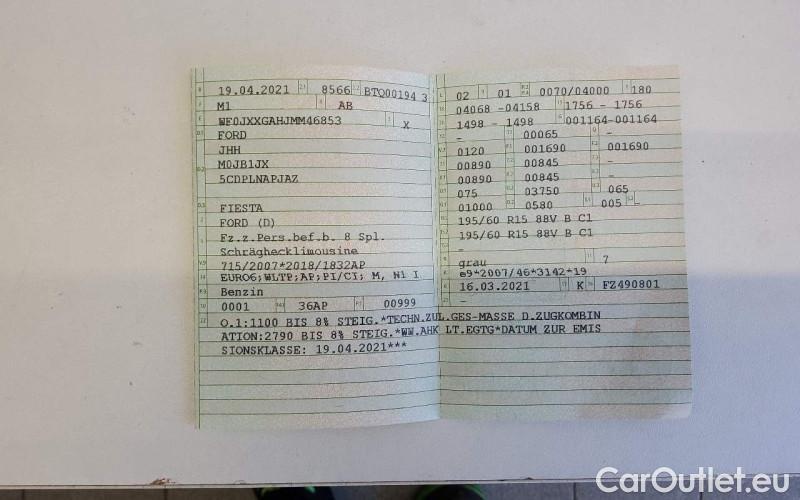 19.04.2021 8566 BTQ00194 3
M1 AB
WF0JXXGAHJMM46853 X
FORD
JHH
M0JB1JX
5CDPLNAPJAZ
FIESTA
FORD (D)
Fz.z.Pers.bef.b. 8 Spl.
Schräghecklimousine
715/2007*2018/1832AP
EURO6;WLTP;AP;PI/CI; M, N1 I
Benzin
0001 36AP 00999
O.1:1100 BIS 8% STEIG.*TECHN.ZUL.GES-MASSE D.ZUGKOMBIN
ATION:2790 BIS 8% STEIG.*WW.AHK LT.EGTG*DATUM ZUR EMIS
SIONSKLASSE: 19.04.2021***
02 01 0070/04000 180
04068 -04158 1756 - 1756
1498 - 1498 001164-001164
- 00065 -
0120 001690 001690
00890 00845 -
00890 00845 -
075 03750 065
01000 0580 005 -
195/60 R15 88V B C1
195/60 R15 88V B C1
-
grau 7
e9*2007/46*3142*19
16.03.2021 K FZ490801
-
CarOutlet.eu